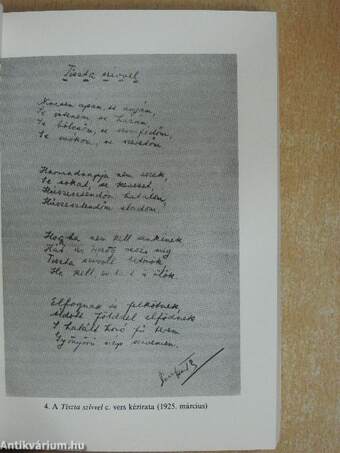 Tiszta szívvel
Nincsen apám, se anyám,
se istenem, se hazám,
se bölcsőm, se szemfedőm,
se csókom, se szeretőm.
Harmadnapja nem eszek,
se sokat, se keveset,
Húszesztendőm hatalom,
Húszesztendőm eladom.
Hogyha nem kell senkinek
Hát az ördög veszi meg
Tiszta szívvel betörök
Ha kell embert is ölök.
Elfognak és felkötnek
áldott földdel elfödnek
S halált hozó fű terem
Gyönyörű szép szívemen.
4. A Tiszta szívvel c. vers kézirata (1925. március)
Antikvárium.hu